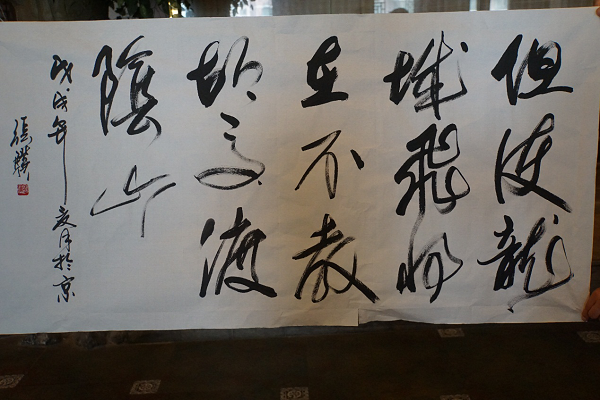 但使龍
城飛将
在不教
胡馬渡
陰山
戊戌年夏月於京
張